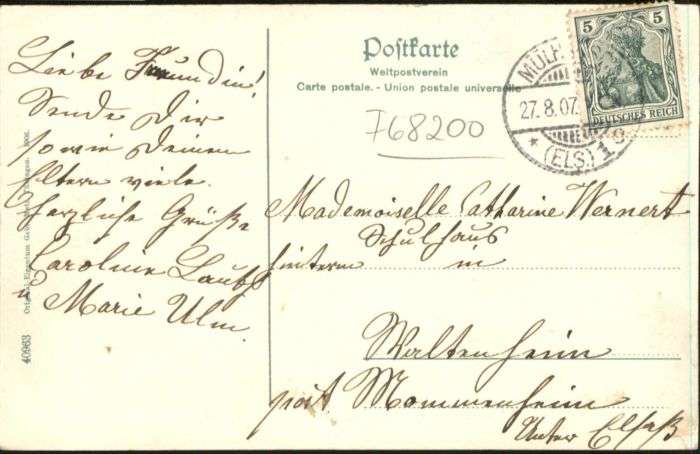 Postkarte
Weltpostverein
Carte postale. - Union postale universelle
5 5
DEUTSCHES REICH
MÜLH
27.8.07.
* (ELS.) 1 c
768200
Liebe Freundin!
Sende Dir
sowie Deinen
Eltern viele
herzliche Grüße
Caroline Laubs
u Marie Ulm
Mademoiselle Catharine Wernert
Schulhaus
hinterm m
Waltenheim
post Mommenheim
Unter Elsaß
40963